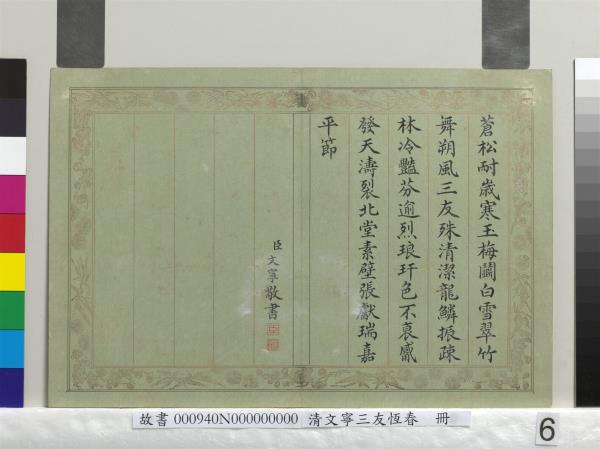 蒼松耐歲寒玉梅鬭白雪翠竹
舞朔風三友殊清潔龍鱗振疎
林冷豔芬逾烈琅玕色不衰感
發天濤裂北堂素壁張獻瑞嘉
平節
臣文寧敬書
故書 000940N000000000 清文寧三友恆春 冊
6